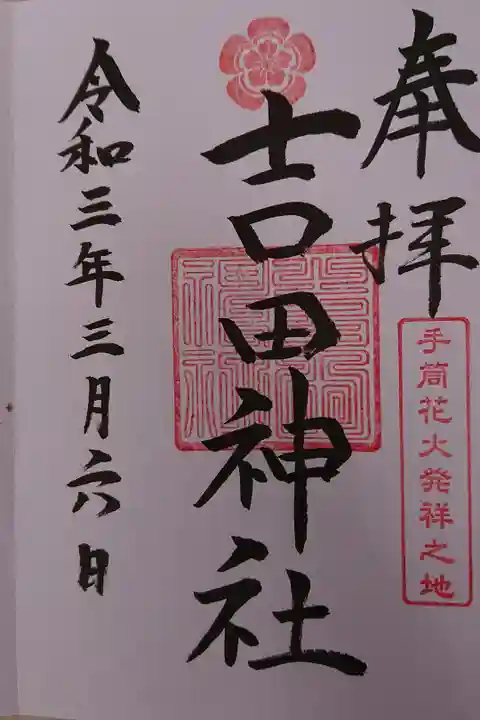 奉拝
手筒花火発祥之地
吉田神社
令和三年三月六日